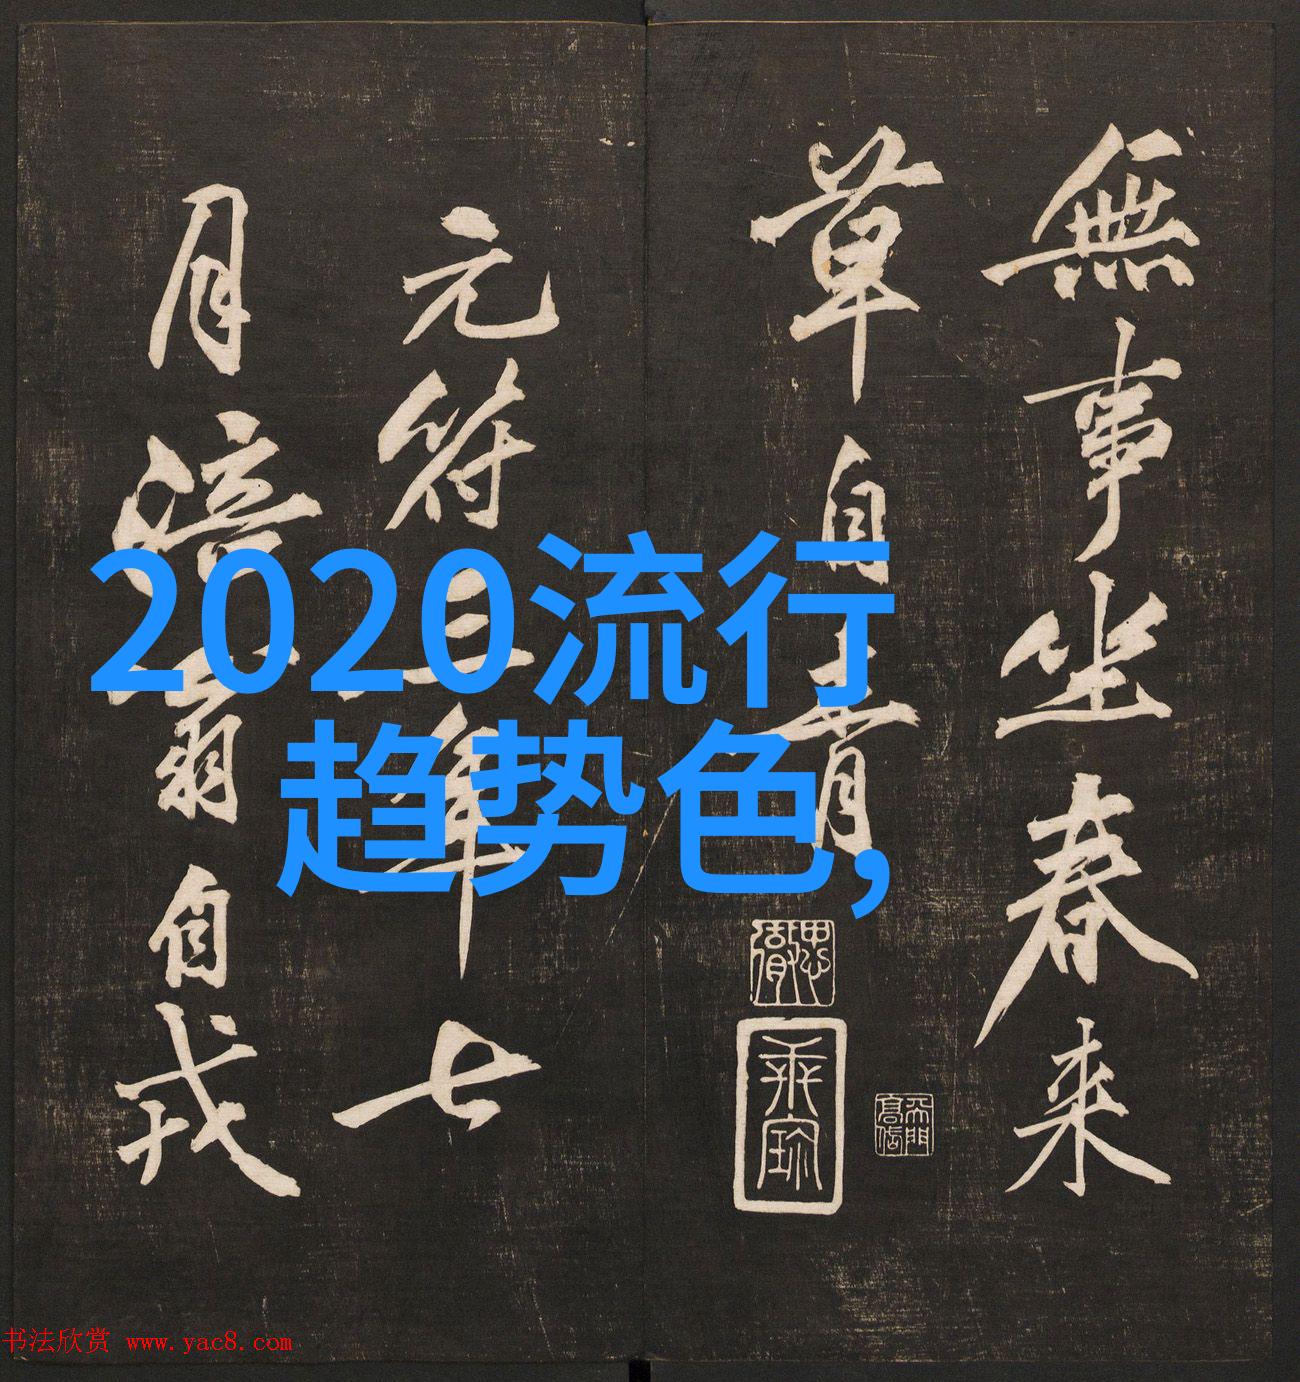 無事坐春来
草自青
元符三年七
月涪翁自戎
2020流行
趋势色,
书法欣赏 www.yac8.com